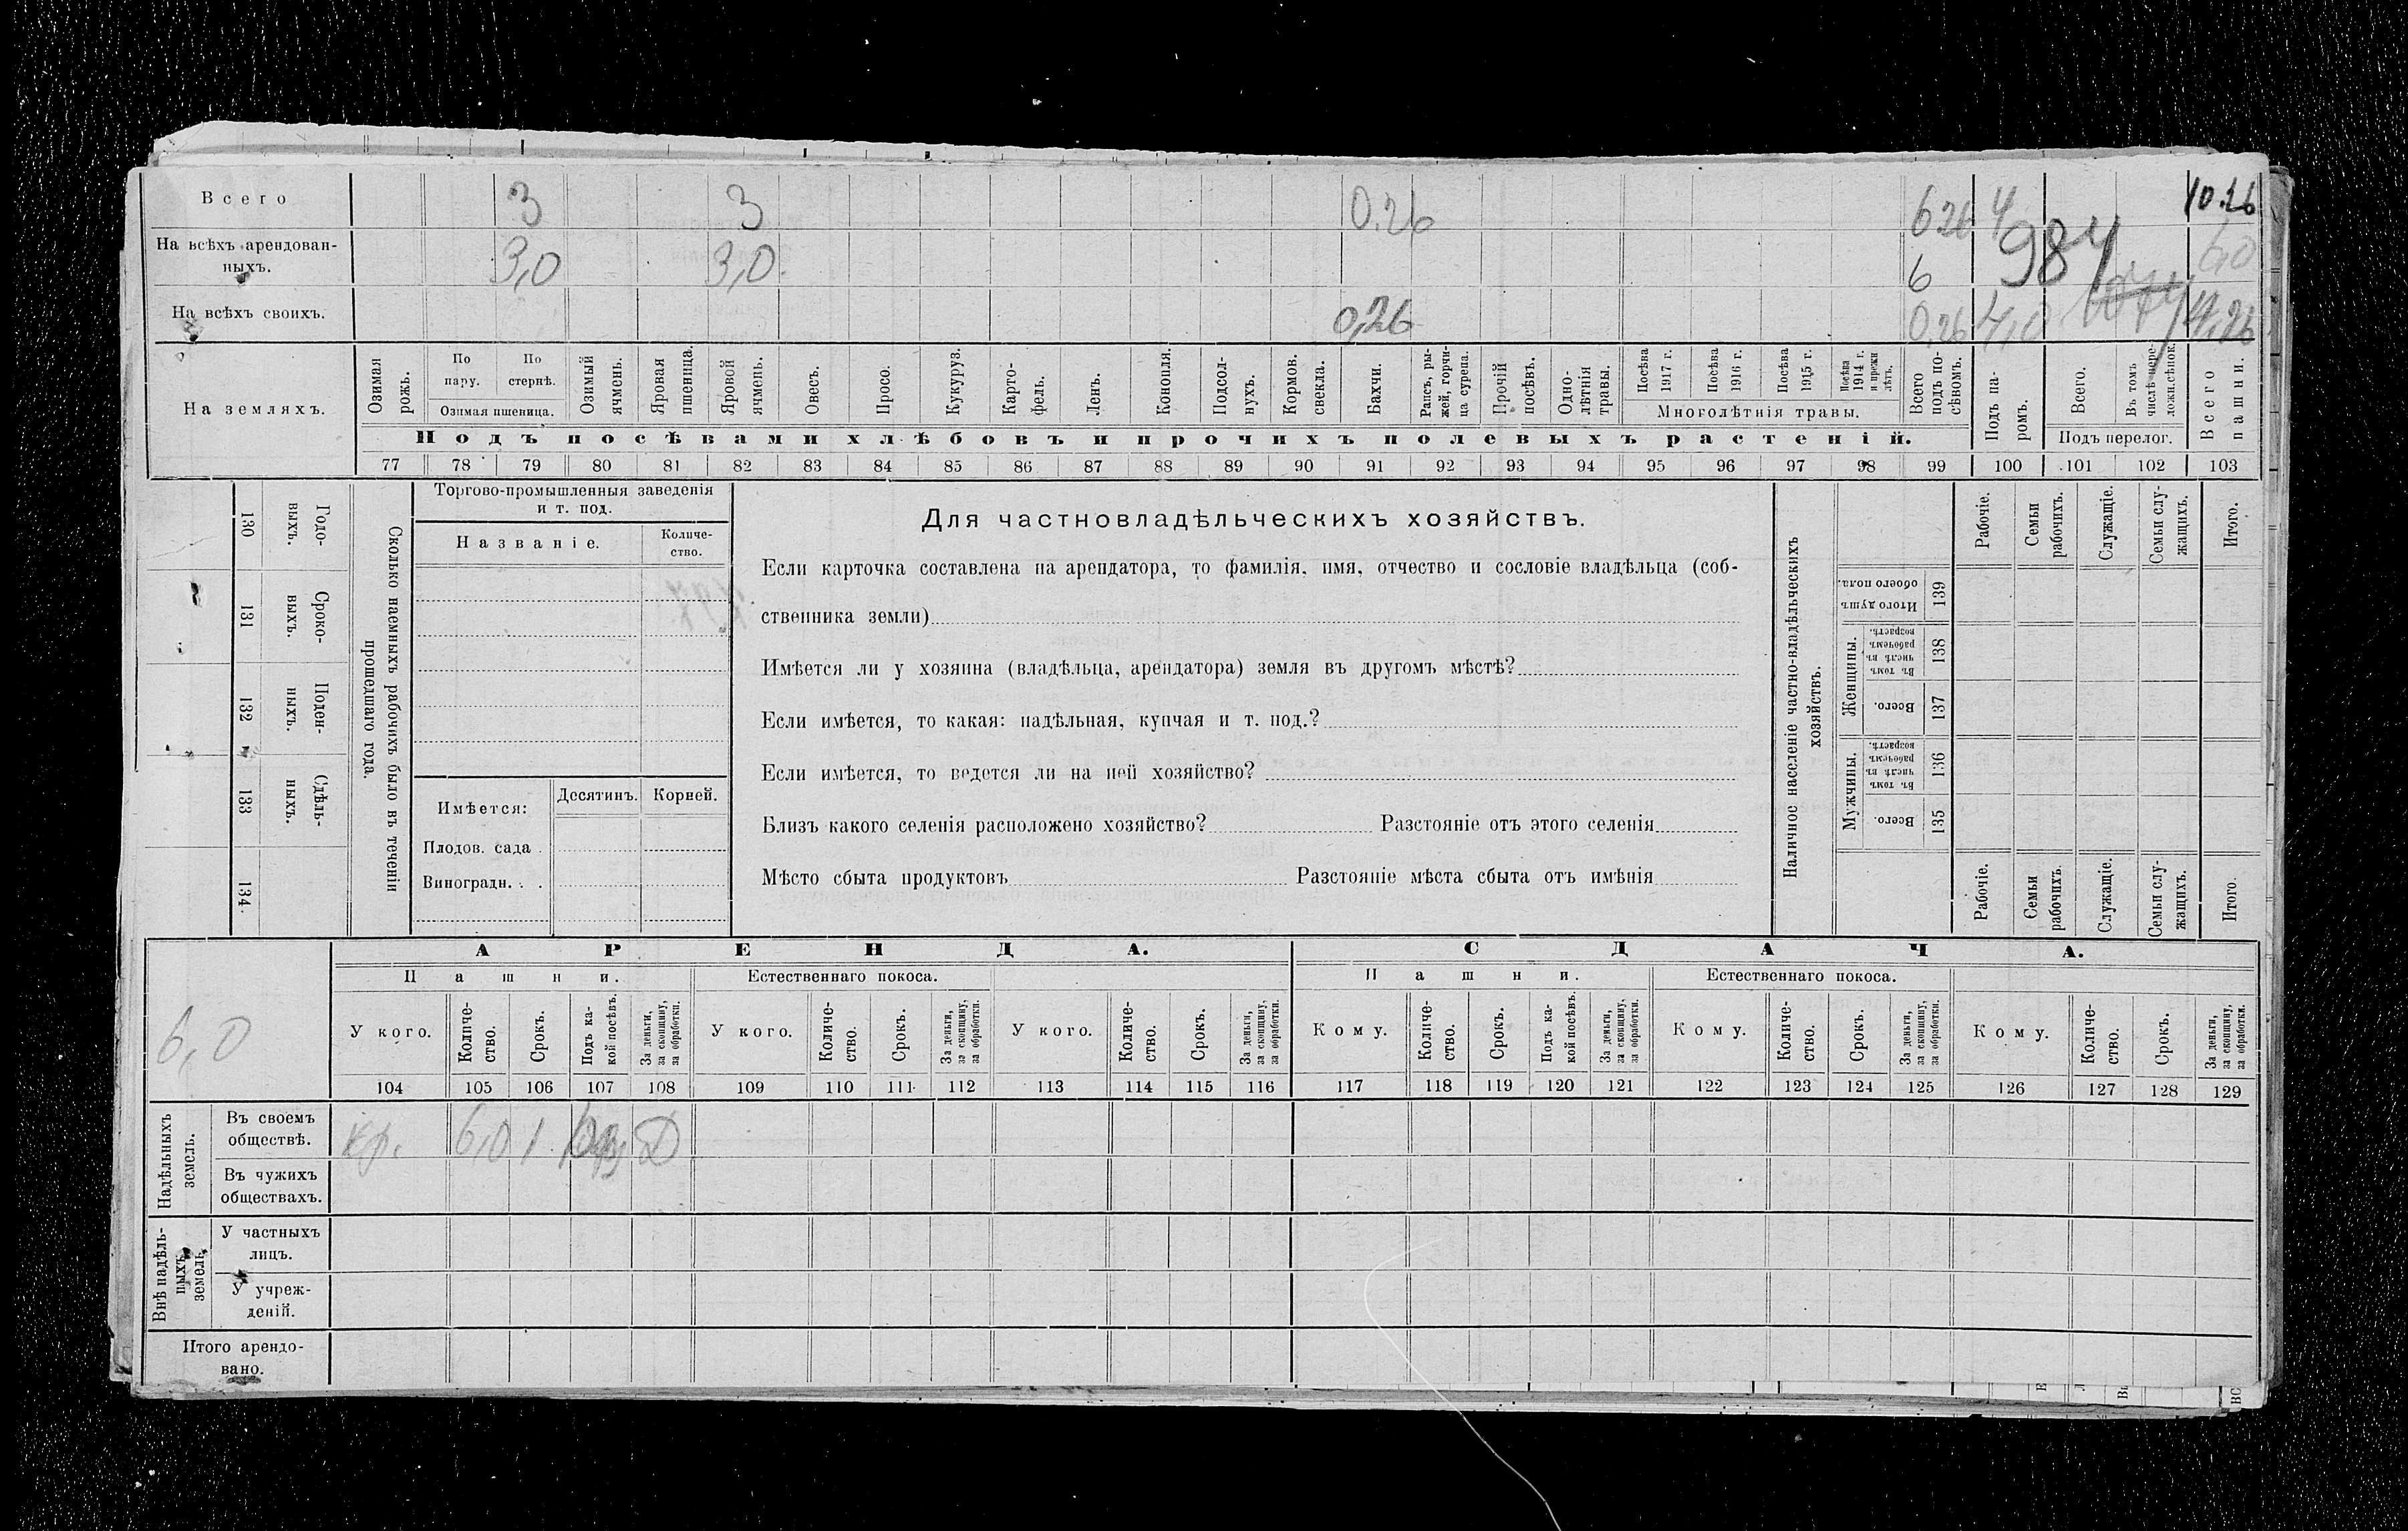 Всего 3 3 0.26 6 26 4 10.26
На всѣхъ арендован-
ныхъ. 3,0 3,0 6 984 6,0
На всѣхъ своихъ. 0,26 0.26 4,0 4,26
На земляхъ.
Озимая рожь.
По пару.
По стернѣ.
Озимая пшеница.
Озимый ячмень.
Яровая пшеница.
Яровой ячмень.
Овесъ.
Просо.
Кукуруз.
Карто-
фель.
Ленъ.
Конопля.
Подсол-
нухъ.
Кормов. свекла.
Бахчи.
Рапсъ, ры-
жей, горчи-
ца сурепа.
Прочій посѣвъ.
Одно-
лѣтнія травы.
Посѣва 1917 г.
Посѣва 1916 г.
Посѣва 1915 г.
Посѣва 1914 г. и прежн лѣтъ.
Многолѣтнія травы.
Всего подъ по-
сѣвомъ.
Подъ па-
ромъ.
Всего.
Въ томъ числѣ пере-
ложн. сѣнок.
Подъ перелог.
Всего пашни.
Подъ посѣвами хлѣбовъ и прочихъ полевыхъ растеній.
77 78 79 80 81 82 83 84 85 86 87 88 89 90 91 92 93 94 95 96 97 98 99 100 101 102 103
Сколько наемныхъ рабочихъ было въ теченіи
прошедшаго года.
Годо-
выхъ.
130
Сроко-
выхъ.
131
Поден-
ныхъ.
132
Сдѣль-
ныхъ.
133
134
Торгово-промышленныя заведенія
и т. под.
Названіе.
Количе-
ство.
Имѣется: Десятинъ. Корней.
Плодов. сада .
Виноградн. . .
Для частновладѣльческихъ хозяйствъ.
Если карточка составлена на арендатора, то фамилія, имя, отчество и сословіе владѣльца (соб-
ственника земли)
Имѣется ли у хозяина (владѣльца, арендатора) земля въ другомъ мѣстѣ?
Если имѣется, то какая: надѣльная, купчая и т. под.?
Если имѣется, то ведется ли на ней хозяйство?
Близъ какого селенія расположено хозяйство? Разстояніе отъ этого селенія
Мѣсто сбыта продуктовъ Разстояніе мѣста сбыта отъ имѣнія
Наличное населеніе частно-владѣльческихъ
хозяйствъ.
Рабочіе.
Семьи рабочихъ.
Служащіе.
Семьи слу-
жащихъ.
Итого.
Итого душъ обоего пола.
139
Женщины.
Въ томъ числѣ въ рабочемъ возрастѣ.
138
Всего.
137
Мужчины.
Въ томъ числѣ въ рабочемъ возрастѣ.
136
Всего.
135
Рабочіе.
Семьи рабочихъ.
Служащіе.
Семьи слу-
жащихъ.
Итого.
6,0
АРЕНДА. СДАЧА.
Пашни. Естественнаго покоса. Пашни. Естественнаго покоса.
У кого.
Количе-
ство.
Срокъ.
Подъ ка-
кой посѣвъ.
За деньги, за скопщину, за обработки.
У кого.
Количе-
ство.
Срокъ.
За деньги, за скопщину, за обработки.
У кого.
Количе-
ство.
Срокъ.
За деньги, за скопщину, за обработки.
Кому.
Количе-
ство.
Срокъ.
Подъ ка-
кой посѣвъ.
За деньги, за скопщину, за обработки.
Кому.
Количе-
ство.
Срокъ.
За деньги, за скопщину, за обработки.
Кому.
Количе-
ство.
Срокъ.
За деньги, за скопщину, за обработки.
104 105 106 107 108 109 110 111 112 113 114 115 116 117 118 119 120 121 122 123 124 125 126 127 128 129
Надѣльныхъ земель.
Въ своемъ
обществѣ. кр. 6,0 1 Д
Въ чужихъ
обществахъ.
Внѣ надѣль-
ныхъ земель.
У частныхъ
лицъ.
У учреж-
деній.
Итого арендо-
вано.